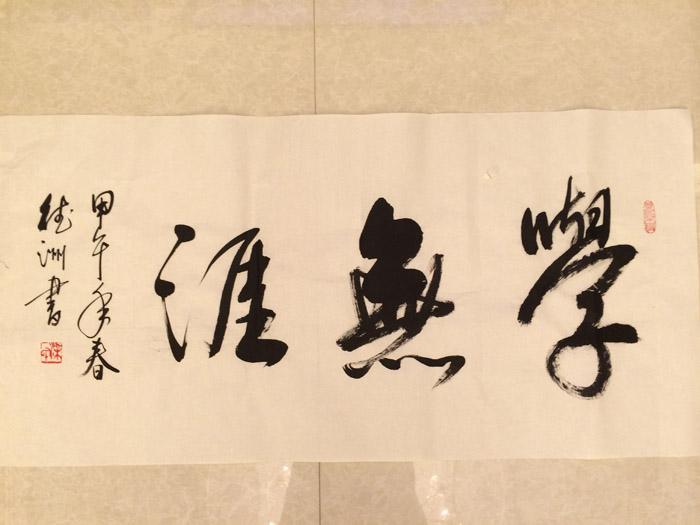 學無涯
甲午年春
德洲書